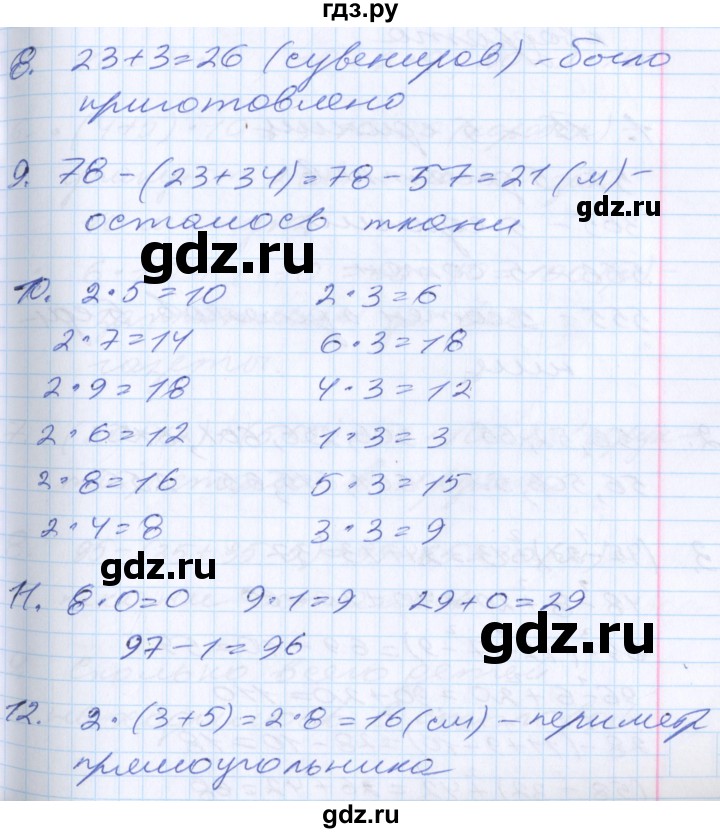 гдз.ру
8. 23+3=26 (сувениров) - было
приготовлено
9. 78-(23+34)=78-57=21 (м) -
gdz.ru
осталось ткани
gdz.ru
10. 2·5=10 2·3=6
2·7=14 6·3=18
2·9=18 4·3=12
gdz.ru
2·6=12 1·3=3
2·8=16 5·3=15
2·4=8 3·3=9
gdz.ru
11. 8·0=0 9·1=9 29+0=29
gdz.ru
97-1=96
12. 2·(3+5)=2·8=16 (см) - периметр
прямоугольника
gdz.ru
gdz.ru